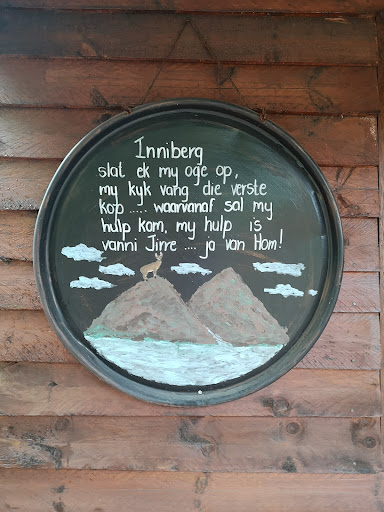 Inniberg
slat ek my oge op,
my kyk vang die verste
kop ..... waarvanaf sal my
hulp kom, my hulp is
vanni Jirre .... ja van Hom!